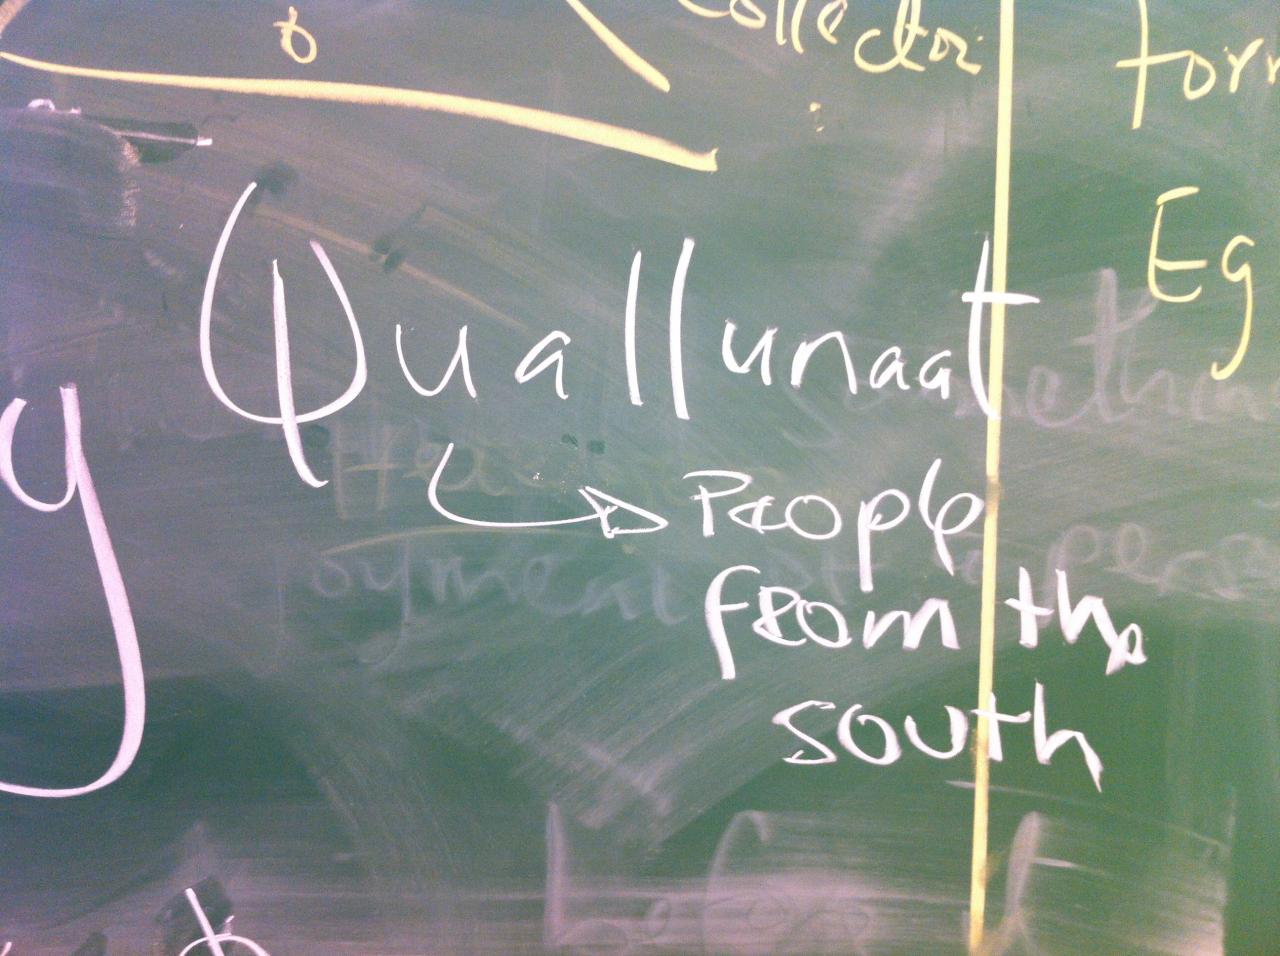 collector
Eg
Quallunaat
People
from the
south